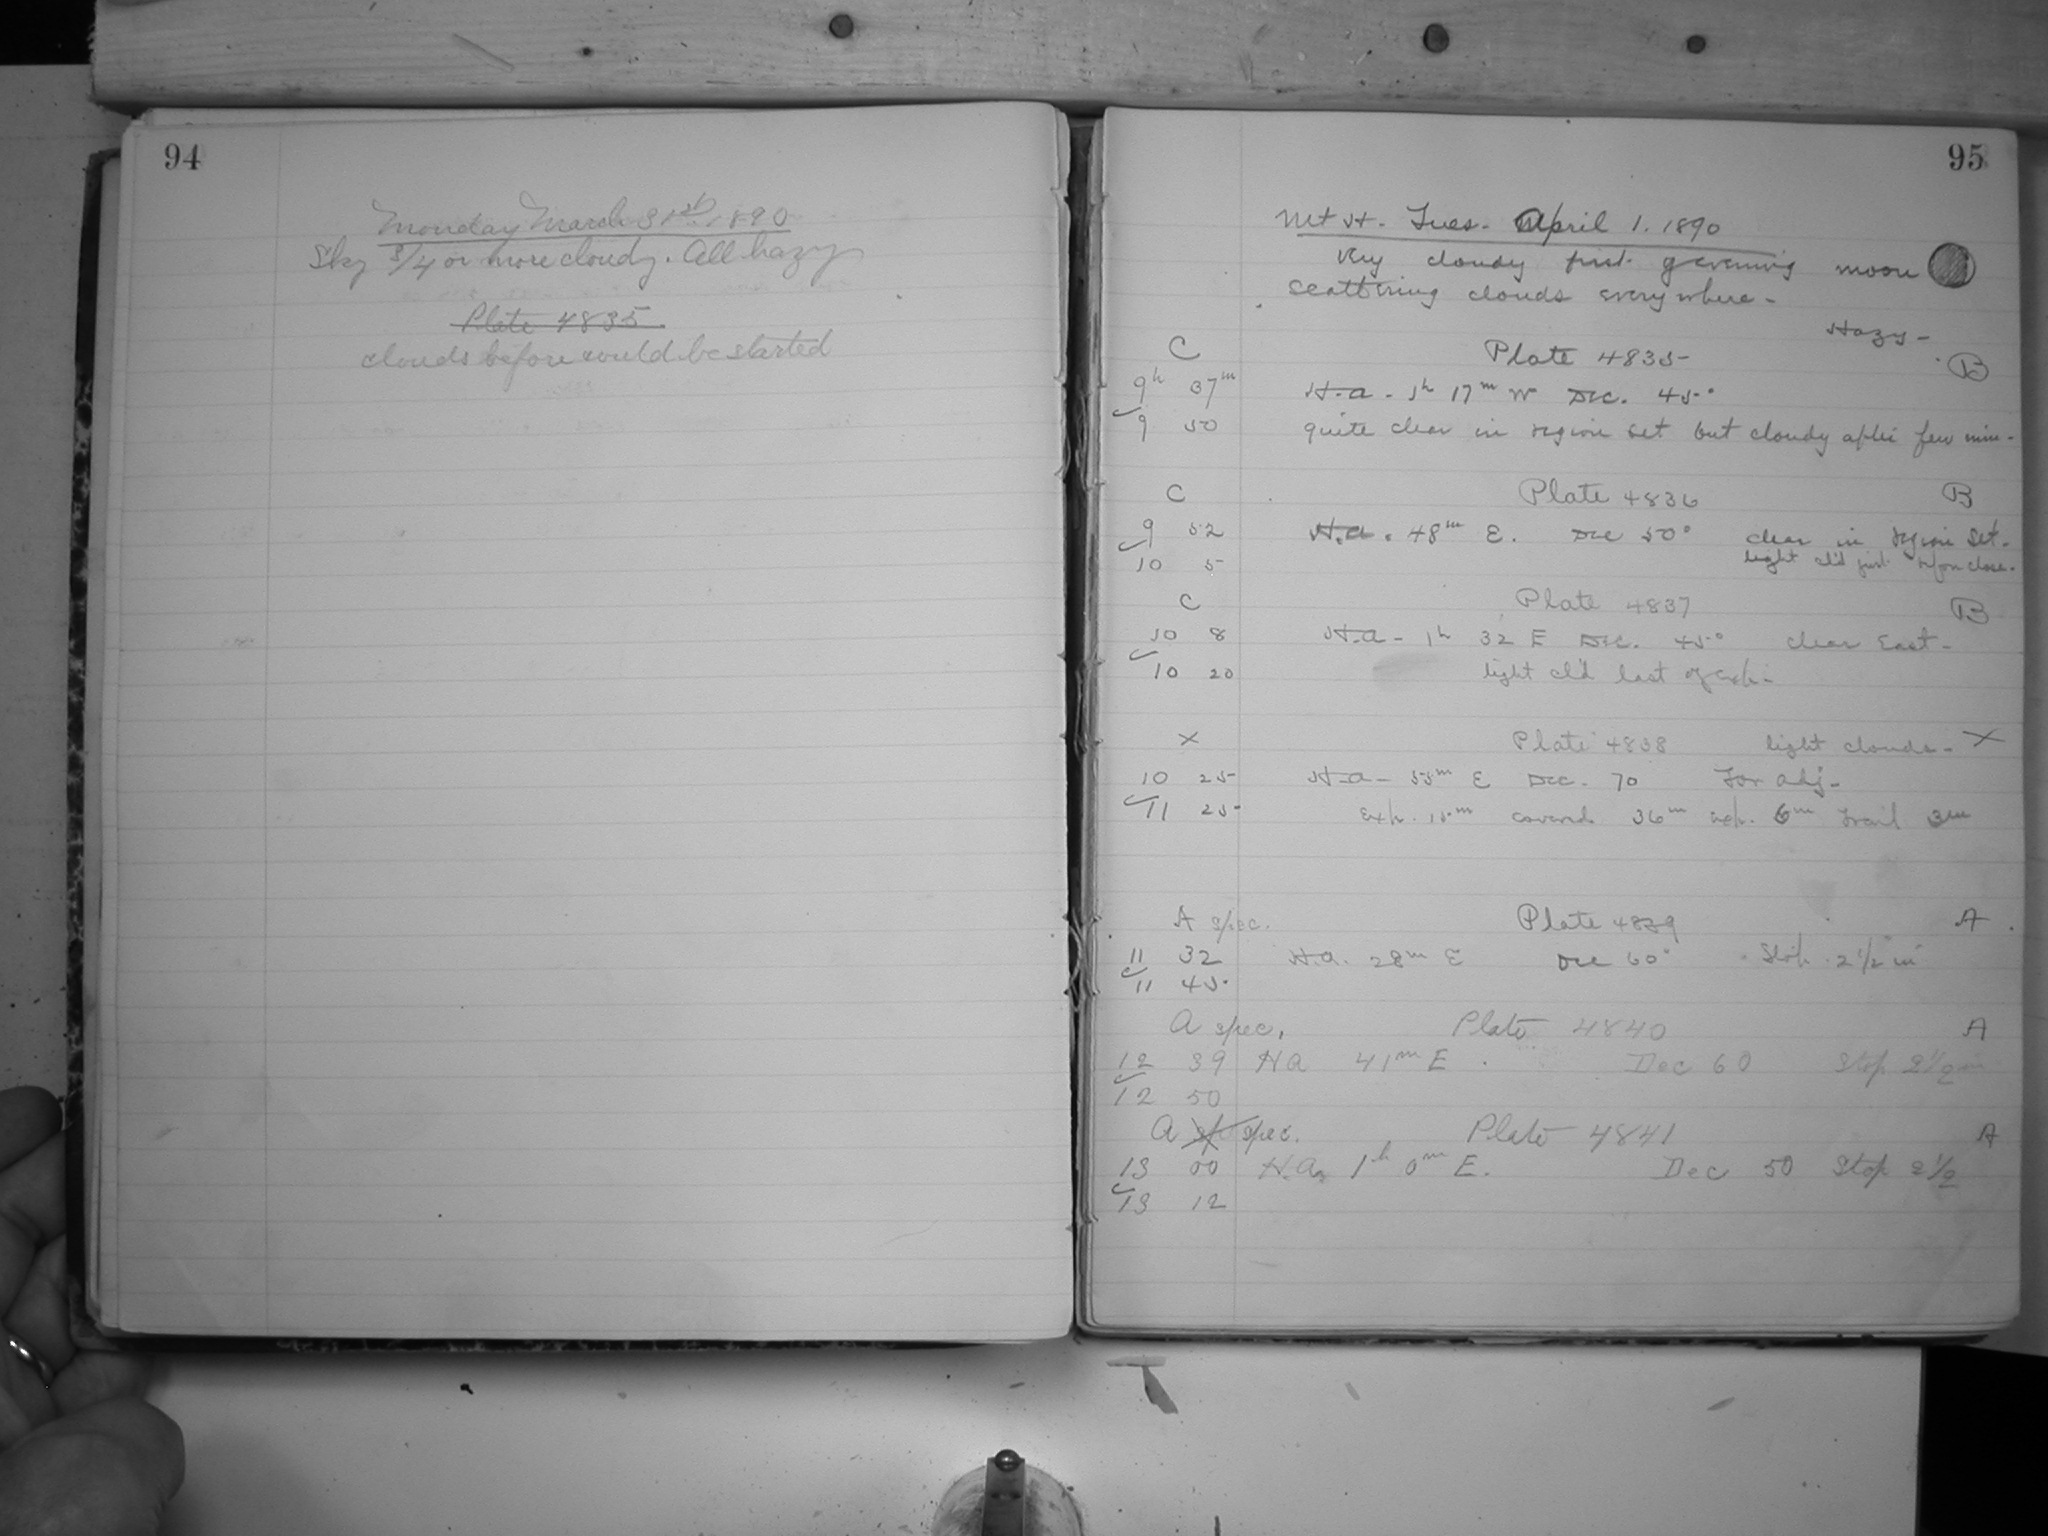 94
Monday March 31st 1890
Sky 3/4 or more cloudy. All hazy
Plate 4835
clouds before could be started
95
Mt H. Tues. April 1. 1890
Very cloudy first evening moon
scattering clouds everywhere -
Hazy -
C Plate 4835 B
9h 37m H.a - 1h 17m W Dec. 45°
9 50 quite clear in region set but cloudy after few min -
C Plate 4836 B
9 52 H.a. 48m E. Dec 50° clear in region set -
10 5 light cl'd just before close -
C Plate 4837 B
10 8 H.a - 1h 32 E Dec. 45° clear East -
10 20 light cl'd last of exp -
X Plate 4838 light clouds - X
10 25 H.a - 55m E Dec. 70 For adj -
11 25 Exp. 15m covered 36m exp. 6m trail 3m
A spec. Plate 4839 A
11 32 H.a. 28m E Dec 60° Stop 2 1/2 in
11 45
A spec. Plate 4840 A
12 39 HA 41m E Dec 60 Stop 2 1/2 in
12 50
A spec. Plate 4841 A
13 00 H.A. 1h 0m E. Dec 50 Stop 2 1/2
13 12